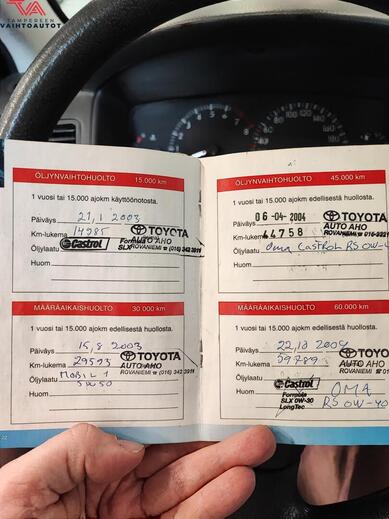 TAMPEREEN
VAIHTOAUTOT
ÖLJYNVAIHTOHUOLTO 15.000 km
1 vuosi tai 15.000 ajokm käyttöönotosta.
Päiväys 21,1 2003
TOYOTA
Km-lukema 14985
AUTO AHO
ROVANIEMI ☎ (016) 342 3911
Öljylaatu Castrol Formula
SLX
Huom
MÄÄRÄAIKAISHUOLTO 30.000 km
1 vuosi tai 15.000 ajokm edellisestä huollosta.
Päiväys 15,8 2003
TOYOTA
Km-lukema 29593
AUTO AHO
ROVANIEMI ☎ (016) 342 3911
Öljylaatu MOBIL 1
5W50
Huom
22
ÖLJYNVAIHTOHUOLTO 45.000 km
1 vuosi tai 15.000 ajokm edellisestä huollosta.
Päiväys 06-04-2004
TOYOTA
Km-lukema 44758
AUTO AHO
ROVANIEMI ☎ (016)
Öljylaatu Oma CASTROL RS 0W-4
Huom
MÄÄRÄAIKAISHUOLTO 60.000 km
1 vuosi tai 15.000 ajokm edellisestä huollosta.
Päiväys 22,10 2004
TOYOTA
Km-lukema 59789
AUTO AHO
ROVANIEMI ☎ (016)
Öljylaatu
Castrol
Huom
Formula
SLX 0W-30
LongTec
OMA
RS 0W-40